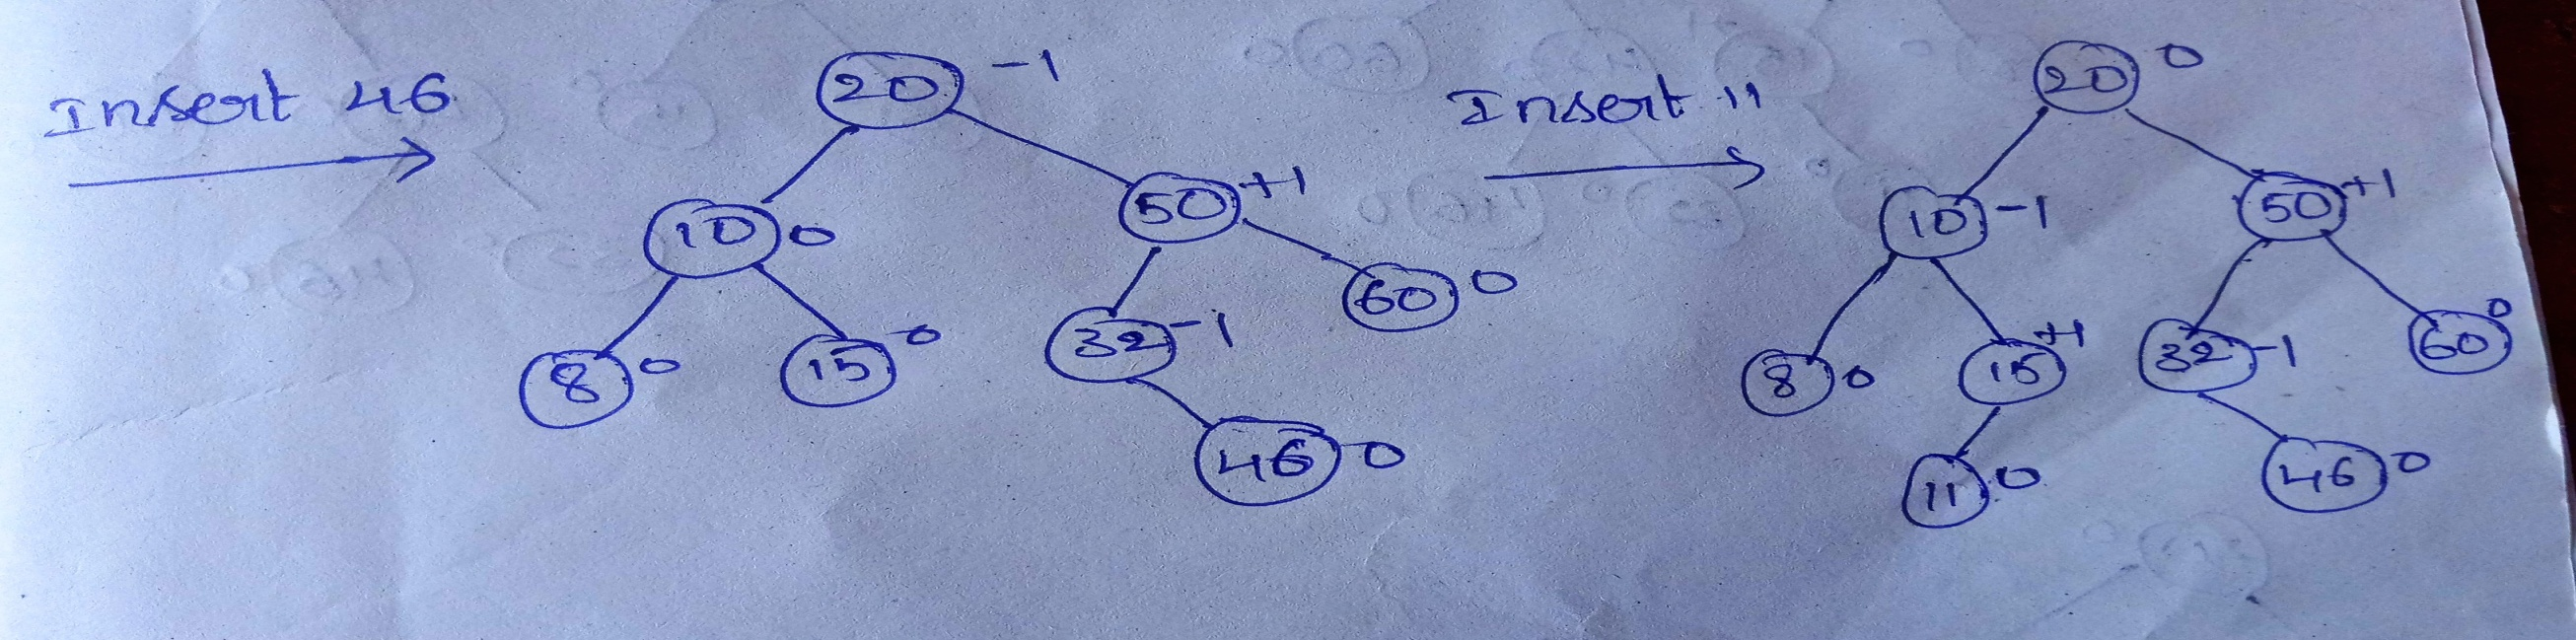 Insert 46
20 -1
10 0
50 +1
8 0
15 0
32 -1
60 0
46 0
Insert 11
20 0
10 -1
50 +1
8 0
15 +1
32 -1
60 0
11 0
46 0